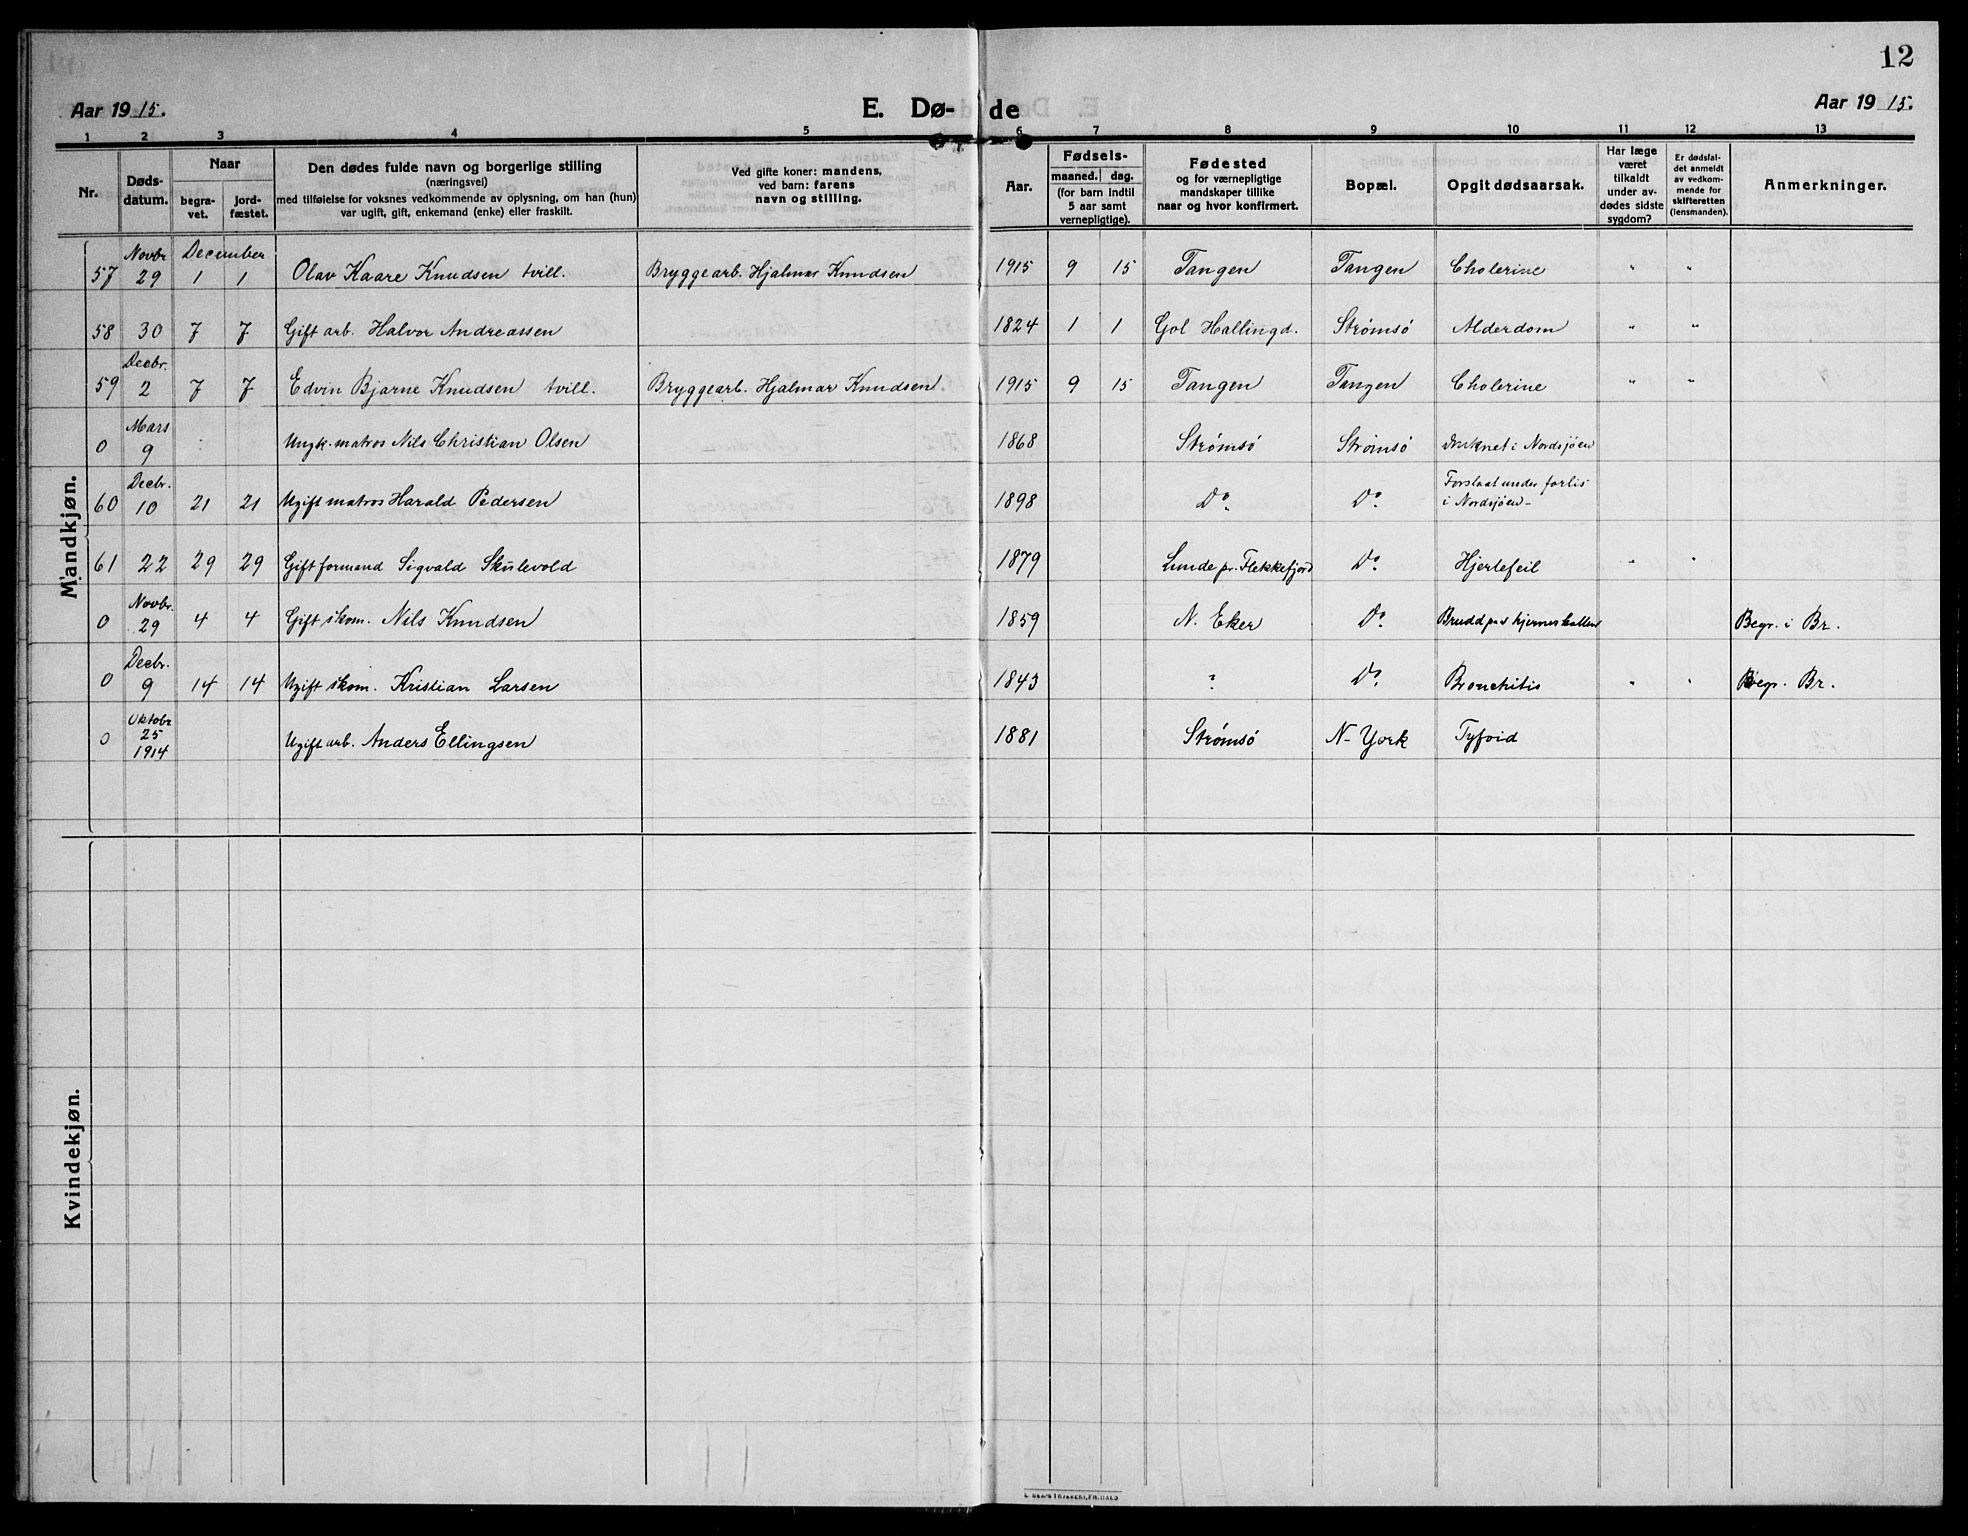 12
Aar 1915. E. Dø- de Aar 1915.
1 2 3 4 5 6 7 8 9 10 11 12 13
Nr. Døds-datum. Naar begra-vet. jord-fæstet. Den dødes fulde navn og borgerlige stilling (næringsvei) med tilføielse for voksnes vedkommende av oplysning, om han (hun) var ugift, gift, enkemand (enke) eller fraskilt. Ved gifte koner: mandens, ved barn: farens navn og stilling. Aar. Fødsels- maaned. dag. (for barn indtil 5 aar samt vernepligtige). Fødested og for værnepligtige mandskaper tillike naar og hvor konfirmert. Bopæl. Opgit dødsaarsak. Har læge været tilkaldt under av-dødes sidste sygdom? Er dødsfal-det anmeldt av vedkom-mende for skifteretten (lensmanden). Anmerkninger.
Mandkjøn.
Novbr. December
57 29 1 1 Olav Kaare Knudsen tvill. Bryggearb. Hjalmar Knudsen 1915 9 15 Tangen Tangen Cholerine " "
58 30 7 7 Gift arb. Halvor Andreassen 1824 1 1 Gol Hallingd. Strømsø Alderdom " "
Decbr.
59 2 7 7 Edvin Bjarne Knudsen tvill. Bryggearb. Hjalmar Knudsen. 1915 9 15 Tangen Tangen Cholerine " "
Mars
0 9 Ungk. matros Nils Christian Olsen 1868 Strømsø Strømsø Druknet i Nordsjøen
Decbr. Forslaat under forlis
60 10 21 21 Ugift matros Harald Pedersen 1898 Do. Do. i Nordsjøen -
61 22 29 29 Gift formand Sigvald Skulevold 1879 Lunde pr. Flekkefjord Do. Hjertefeil " "
Novbr.
0 29 4 4 Gift skom. Nils Knudsen 1859 N. Eker Do. Brudd paa hjerneskallen Begr. i Br.
Decbr.
0 9 14 14 Ugift skom. Kristian Larsen 1843 ? Do. Bronchitis " " Begr. Br.
Oktobr.
0 25 Ugift arb. Anders Ellingsen 1881 Strømsø N-York Tyfoid
1914
Kvindekjøn.